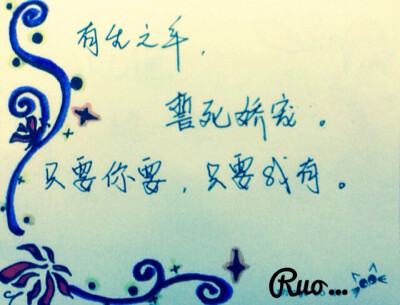 有生之年，
誓死娇宠。
只要你要，只要我有。
Ruo...